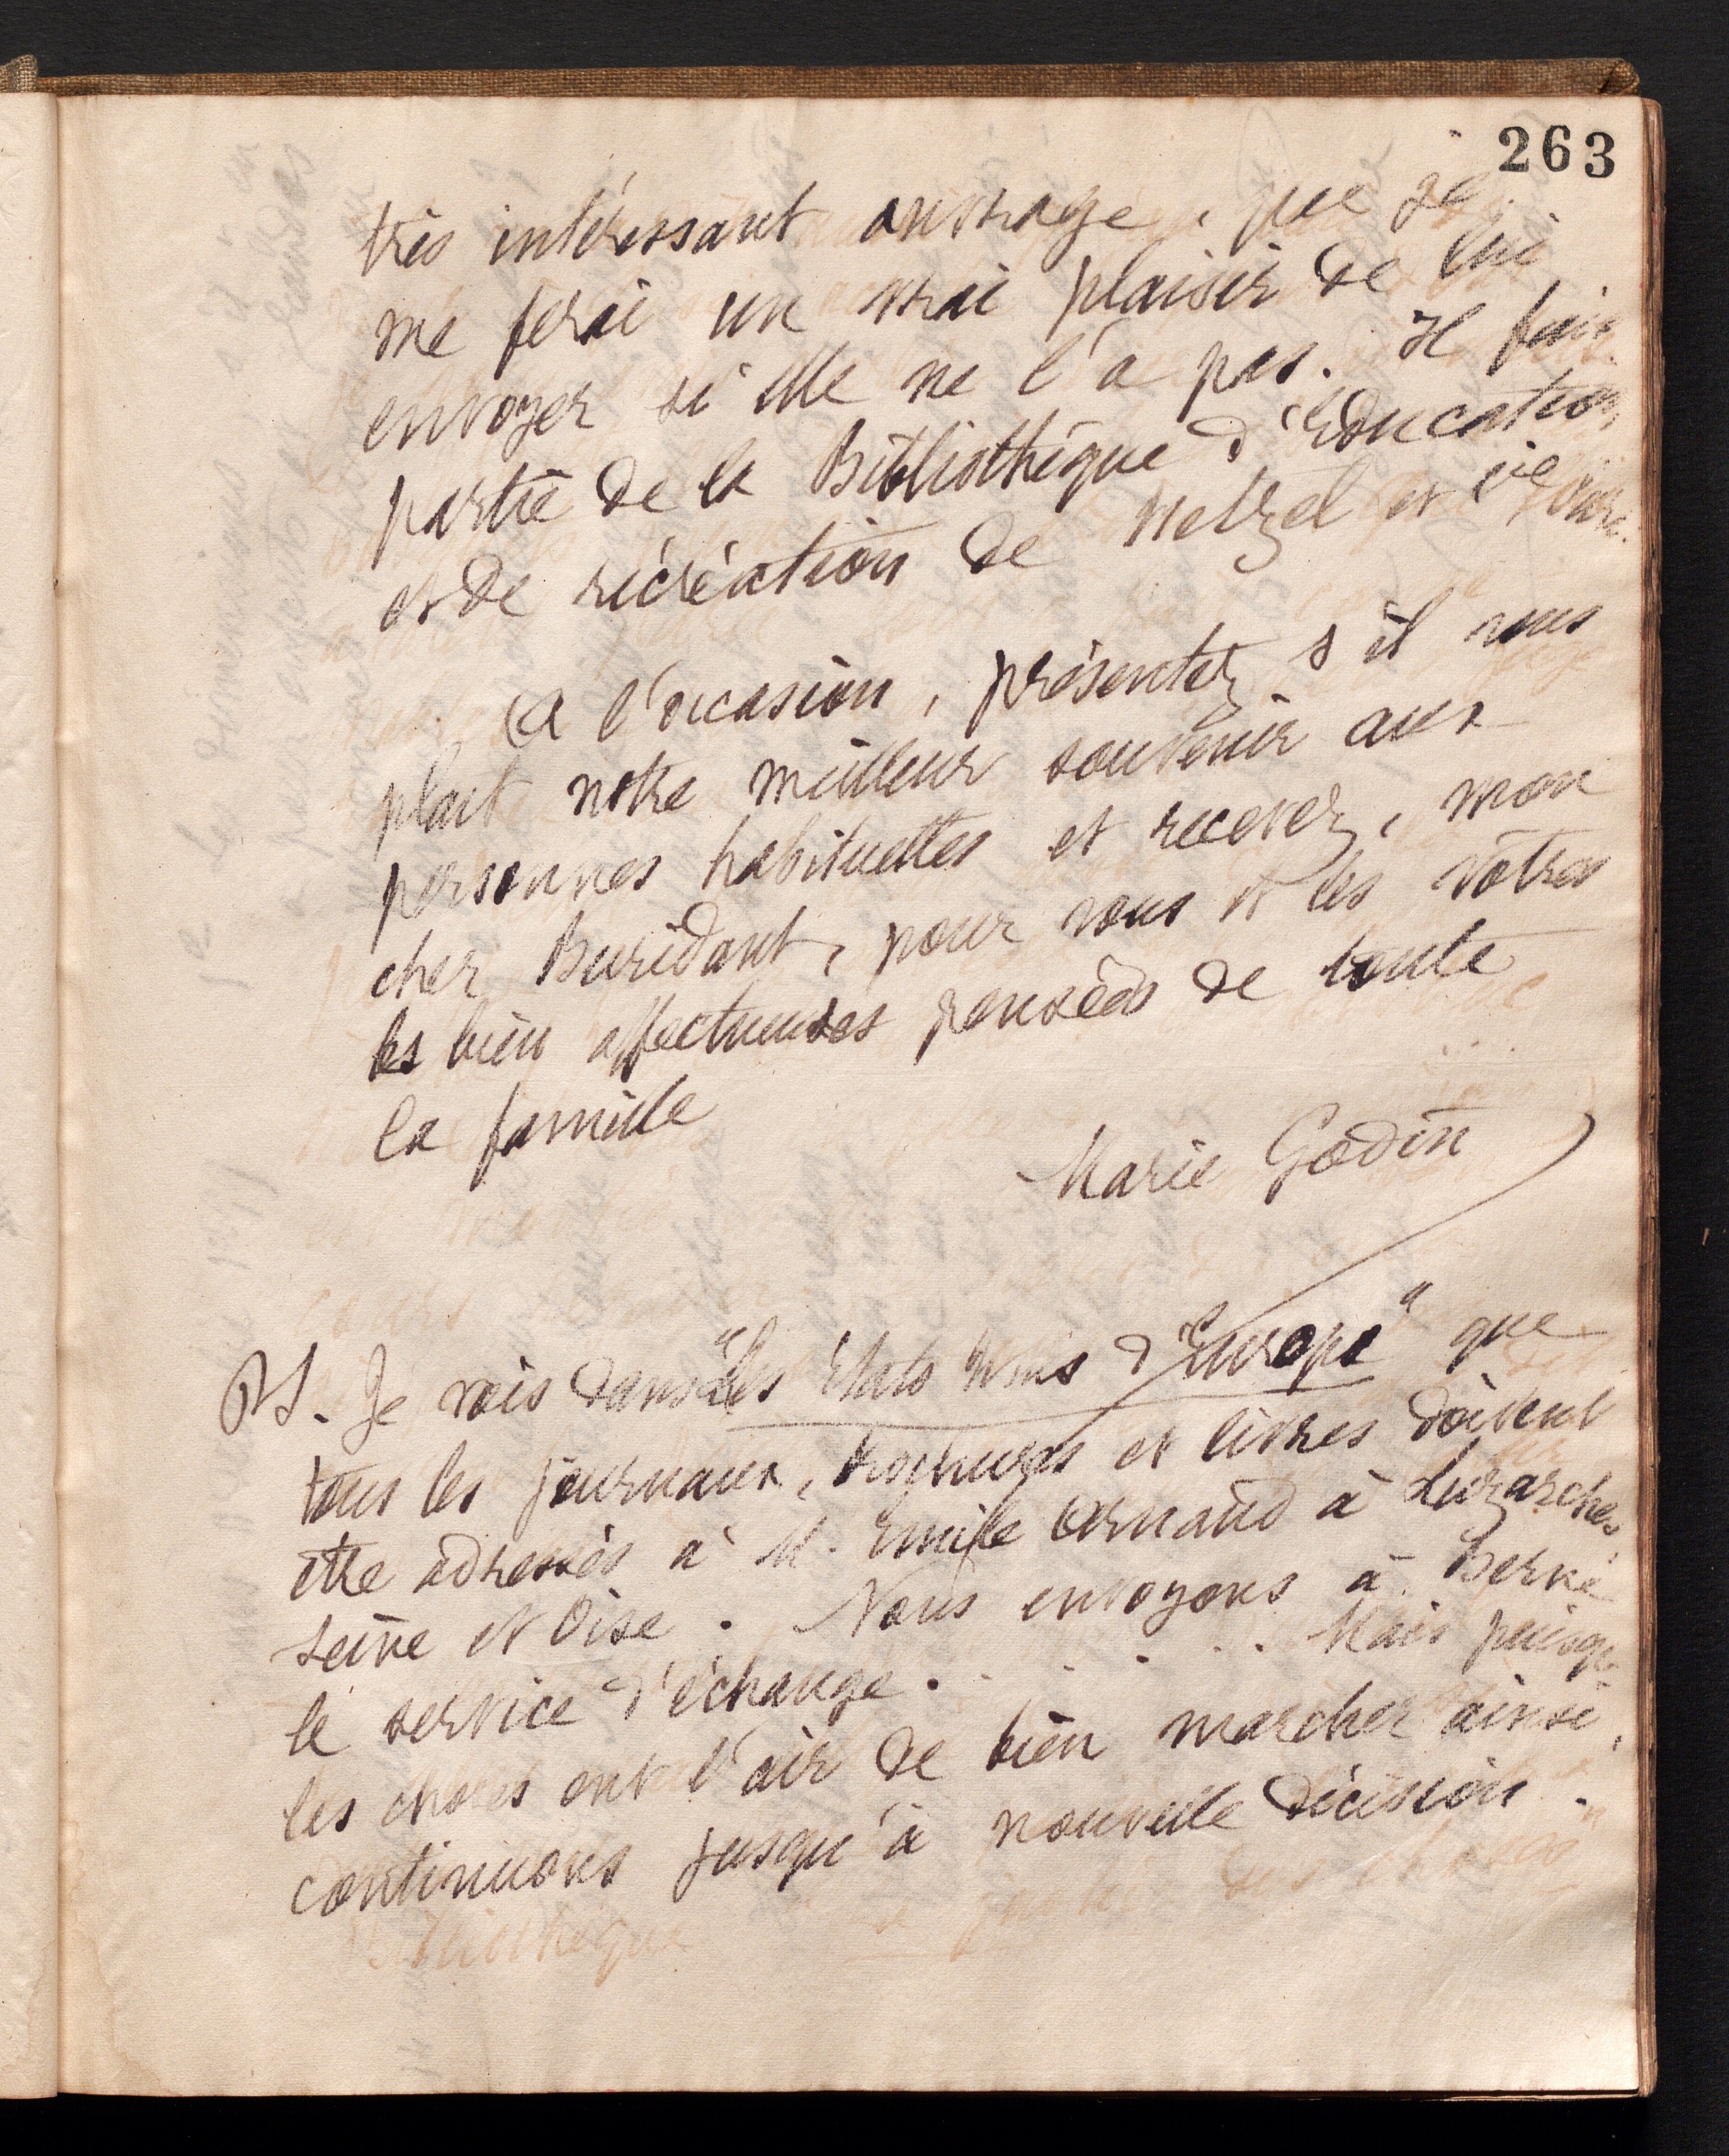 263
très intéressant ouvrage, que je
me ferai un vrai plaisir de lui
envoyer si elle ne l'a pas. Il fait
partie de la Bibliothèque d'Education
et de récréation de Hetzel et Cie
A l'occasion, présentez s'il vous
plait notre meilleur souvenir aux
personnes habituelles et recevez, mon
cher Buridant, pour vous et les vôtres
les bien affectueuses pensées de toute
la famille
Marie Godin
PS. Je vois dans "Les Etats Unis d'Europe" que
tous les journaux, brochures et livres doivent
être adressés à M. Emile Arnaud à Luzarches
Seine et Oise. Nous envoyons à Berne
le service d'échange . . . . . Mais puisque
les choses ont l'air de bien marcher ainsi,
continuons jusqu'à nouvelle décision.